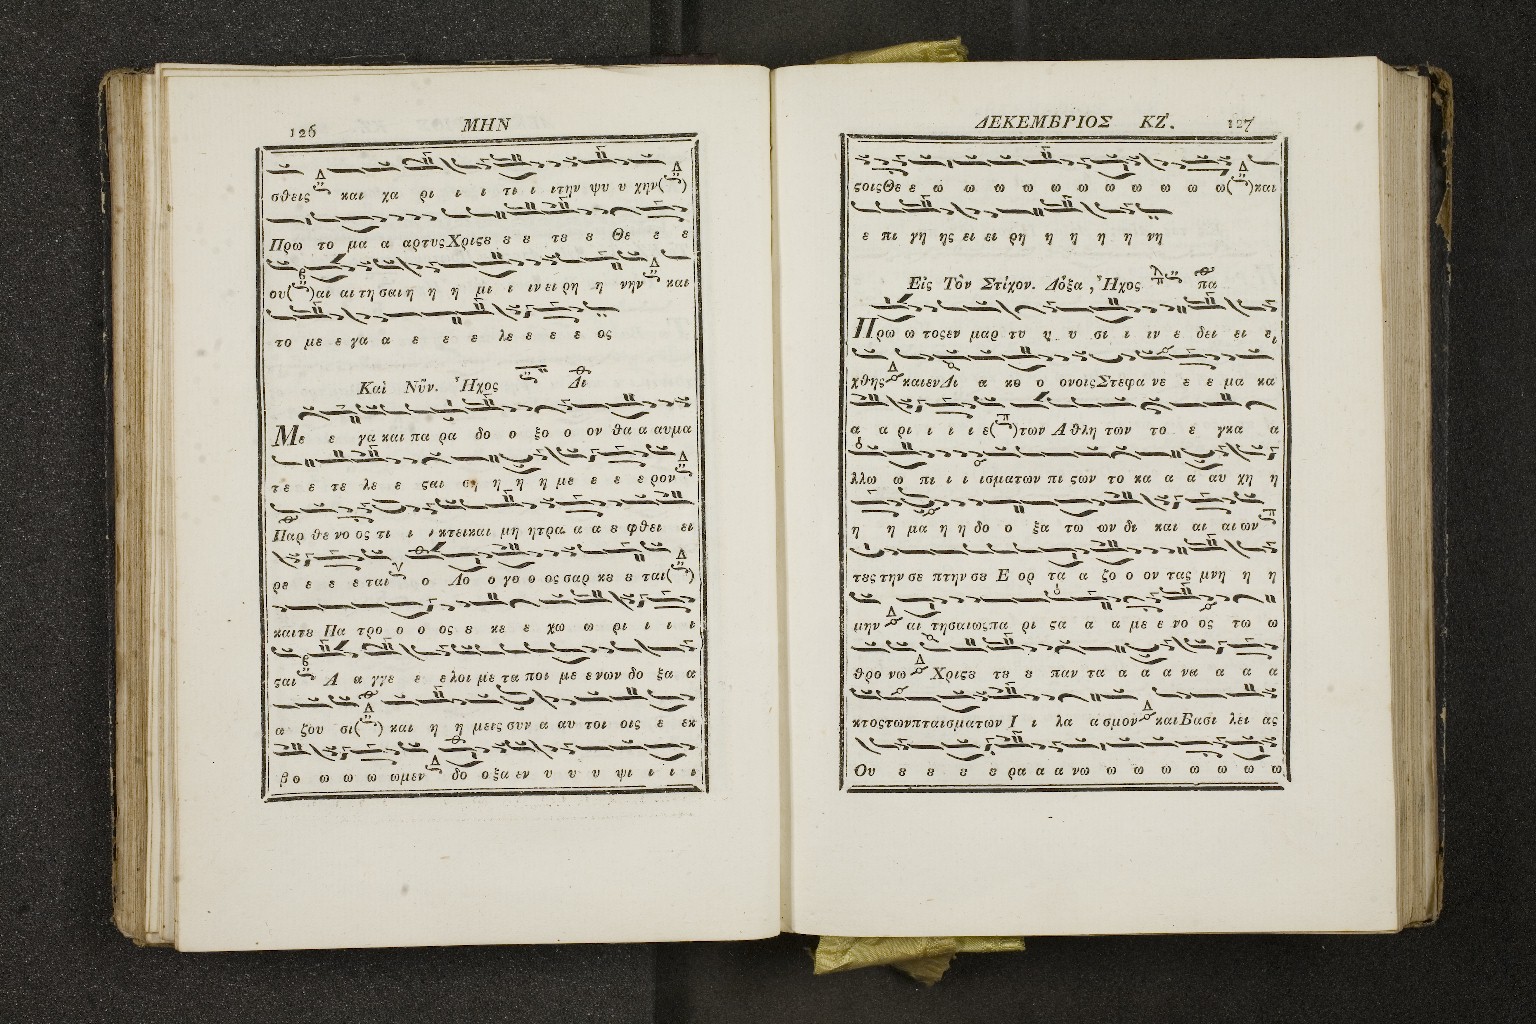 126 ΜΗΝ
σθεις και χα ρι ι ι τι ι ιτην ψυ υ χην( )
Πρω το μα α αρτυςΧριϛȣ ȣ ȣ τȣ ȣ Θε ε ε
ου( )αι αι τη σαι η η η μι ι ινει ρη η νην και
το με ε γα α ε ε ε λε ε ε ε ος
Καὶ Νῦν. Ἦχος Δι
Με ε γα και πα ρα δο ο ξο ο ον θα α αυμα
τε ε τε λε ε ϛαι ση η η η με ε ε ε ρον
Παρ θε νο ος τι ι ι κτεικαι μη ητρα α α ȣ φθει ει
ρε ε ε ε ται ο Λο ο γο ο οςσαρ κȣ ȣ ται( )
καιτȣ Πα τρο ο ο ος ȣ κε ε χω ω ρι ι ι ι
ϛαι Α α γγε ε ε λοι με τα ποι με ε νων δο ξα α
α ζου σι( ) και η η μεις συν α αυ τοι οις ε εκ
βο ω ω ω ωμεν δο ο ξα εν υ υ υ ψι ι ι ι
ΔΕΚΕΜΒΡΙΟΣ ΚΖ. 127
ϛοιςΘε ε ω ω ω ω ω ω ω ω ω ω ω( )και
ε πι γη ης ει ει ρη η η η η νη
Εἰς Τὸν Στίχον. Δόξα, Ἦχος πα
Πρω ω τοςεν μαρ τυ υ υ σι ι ιν ε δει ει ε
χθης καιενΔι α κο ο ονοιςΣτεφα νε ε ε μα κα
α α ρι ι ι ι ε( )των Α θλη των το ε γκα α
λλω ω πι ι ι ισματων πι ϛων το κα α α αυ χη η
η η μα η η δο ο ξα τω ων δι και αι αι ων
τȣς την σε πτην σȣ Ε ορ τα α ζο ο ον τας μνη η η
μην αι τησαιωςπα ρι ϛα α α με ε νο ος τω ω
θρο νω Χριϛȣ τȣ ȣ παν τα α α α να α α α
κτοςτωνπταισματων Ι ι λα ασμον καιΒασι λει ας
Ου ȣ ȣ ȣ ȣ ρα α α νω ω ω ω ω ω ω ω